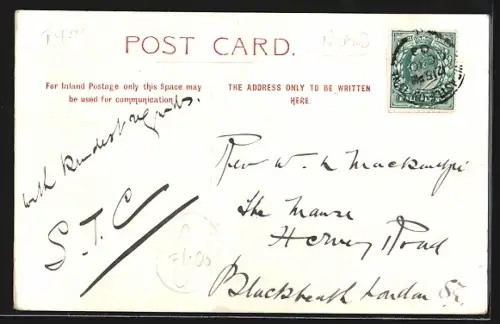 POST CARD.
For Inland Postage only this Space may
be used for communication.
THE ADDRESS ONLY TO BE WRITTEN
HERE
with kindest regards.
S. T. C
Rev W. L Mackenzie
The Manse
Hervey Road
Blackheath London S.E.